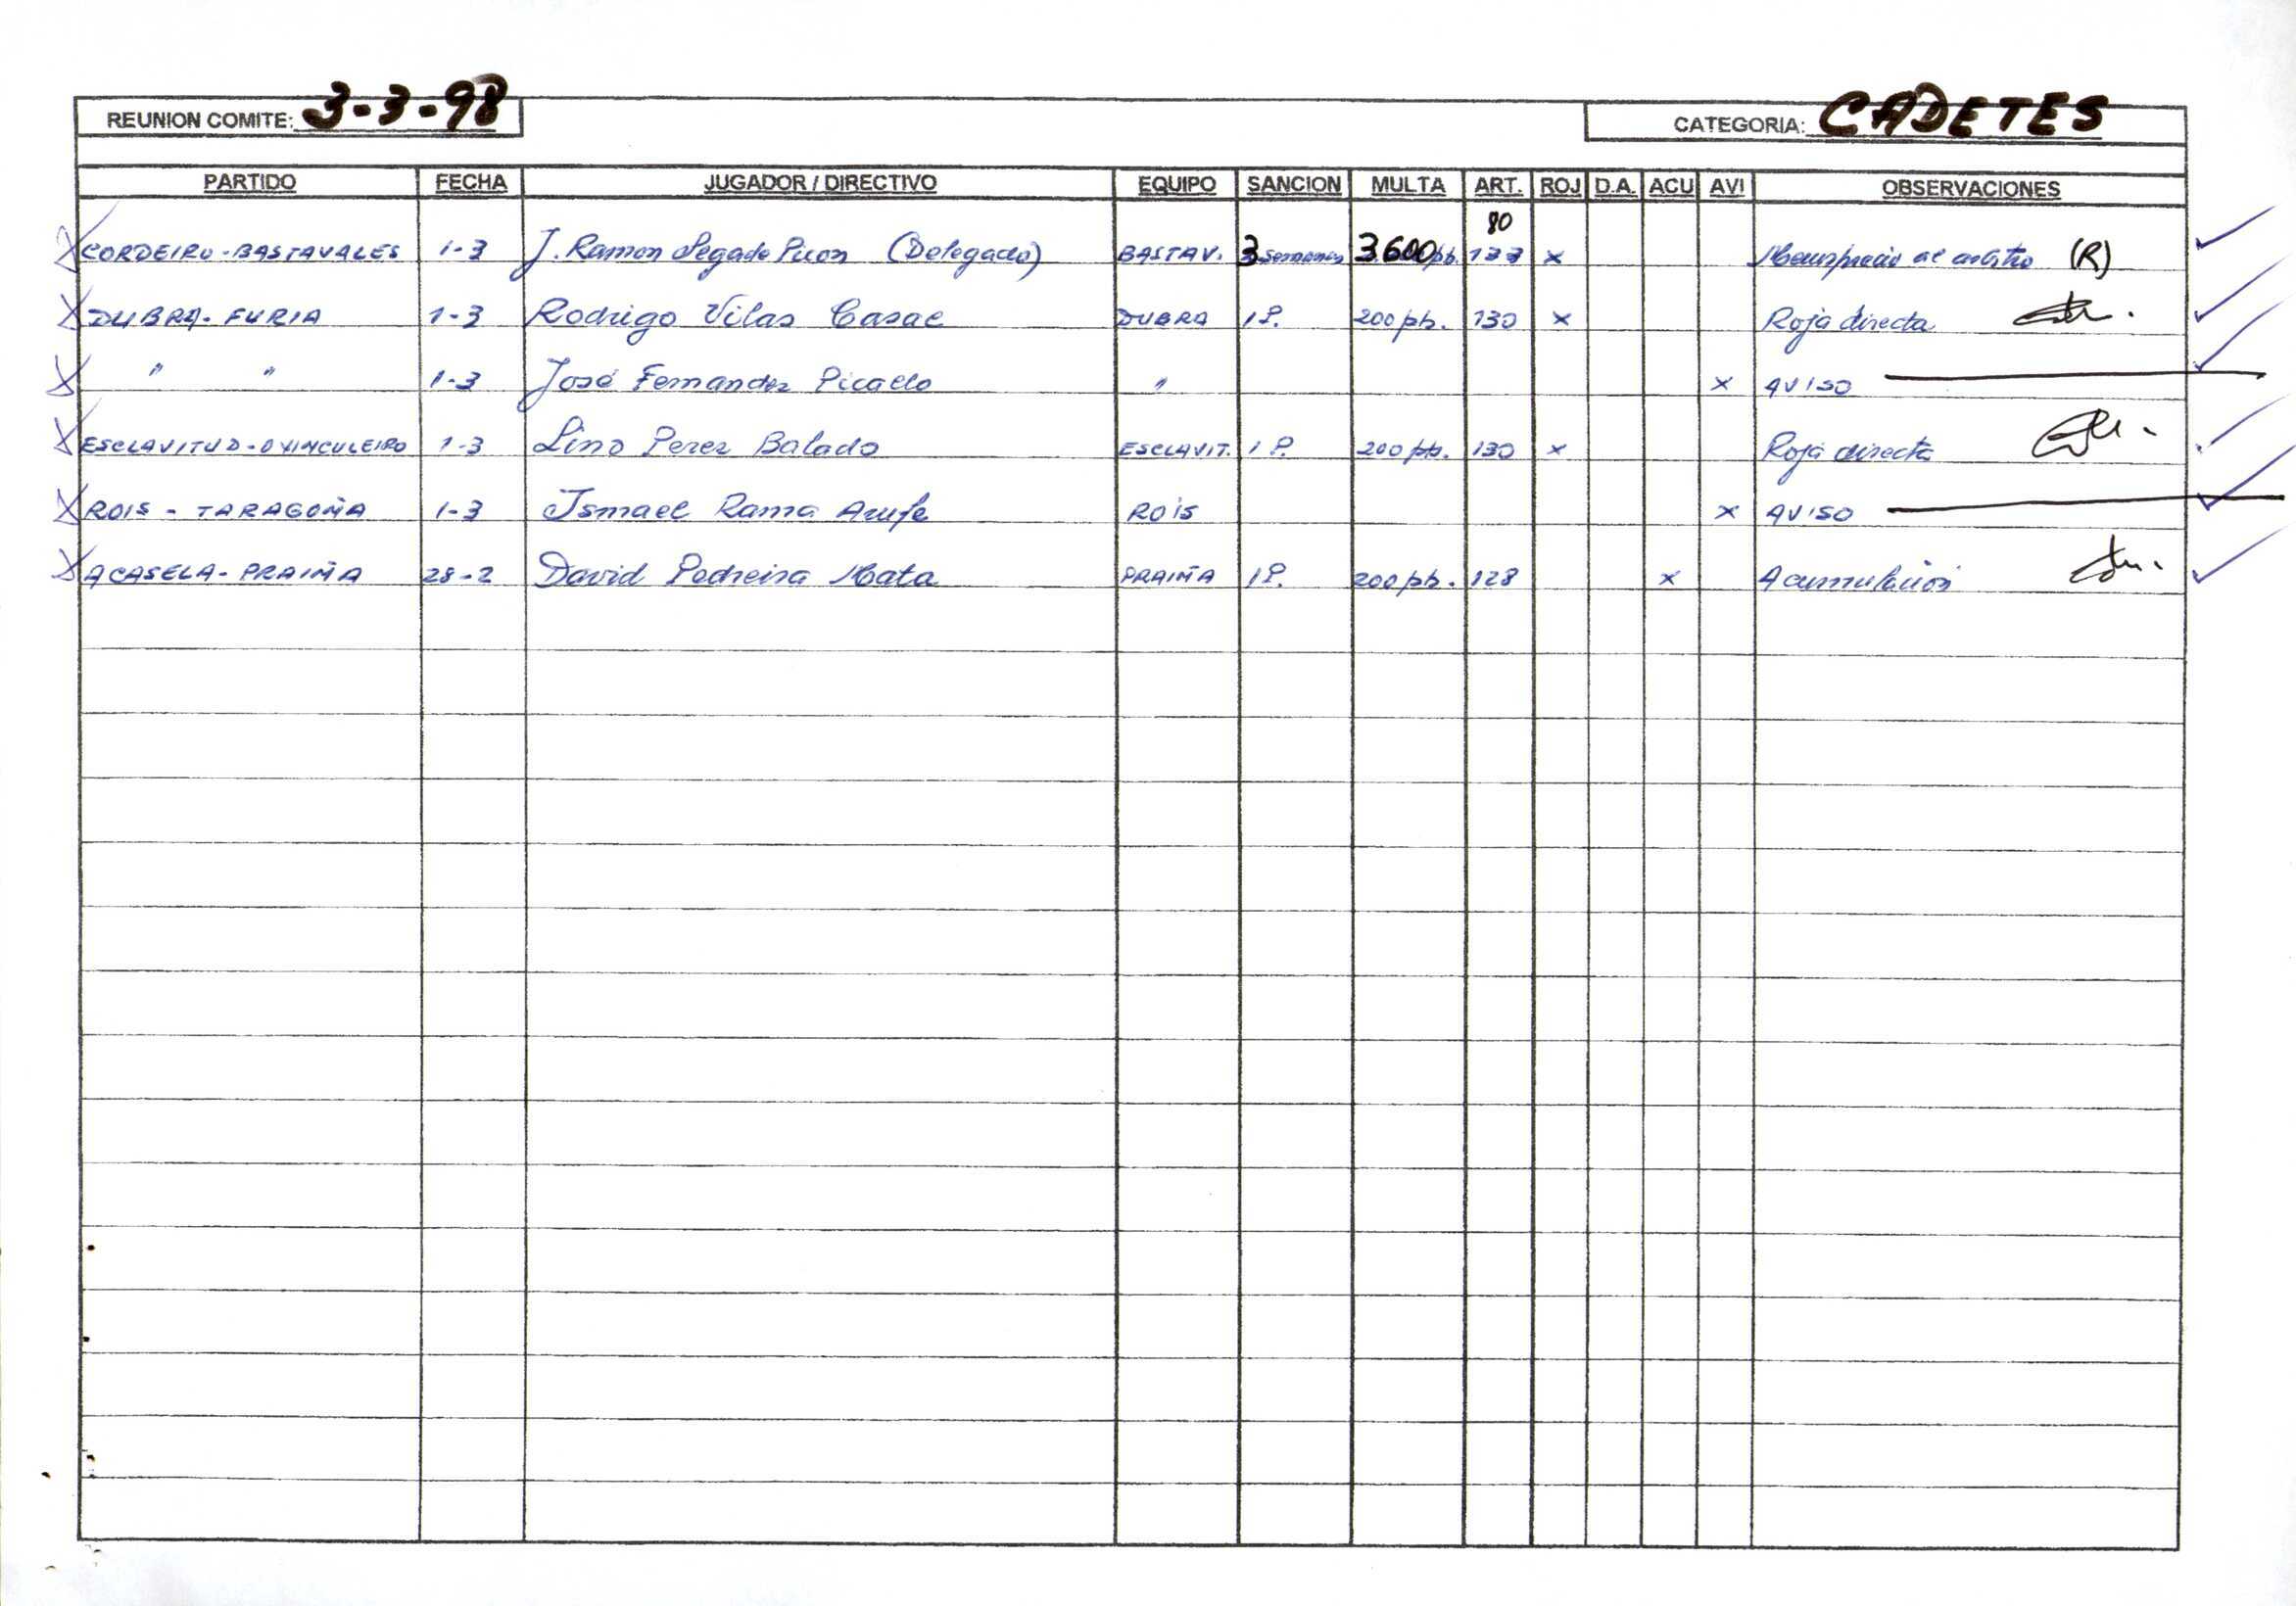 REUNION COMITE: 3-3-98 CATEGORIA: CADETES
PARTIDO FECHA JUGADOR / DIRECTIVO EQUIPO SANCION MULTA ART. ROJ D.A. ACU AVI OBSERVACIONES
80
X CORDEIRO-BASTAVALES 1-3 J. Ramon Segade Picon (Delegado) BASTAV. 3 semanas 3.600 pts. 133 x Menosprecio al arbitro (R)
X DUBRA-FURIA 1-3 Rodrigo Vilas Casal DUBRA 1P. 200 pts. 130 x Roja directa
X " " 1-3 José Fernandez Picallo " x AVISO
X ESCLAVITUD- 1-3 Lino Perez Balado ESCLAVIT. 1P. 200 pts. 130 x Roja directa
X ROIS - TARAGOÑA 1-3 Ismael Rama Arufe ROIS x AVISO
X ACASELA-PRAIÑA 28-2 David Pedreira Mata PRAIÑA 1P. 200 pts. 128 x Acumulación